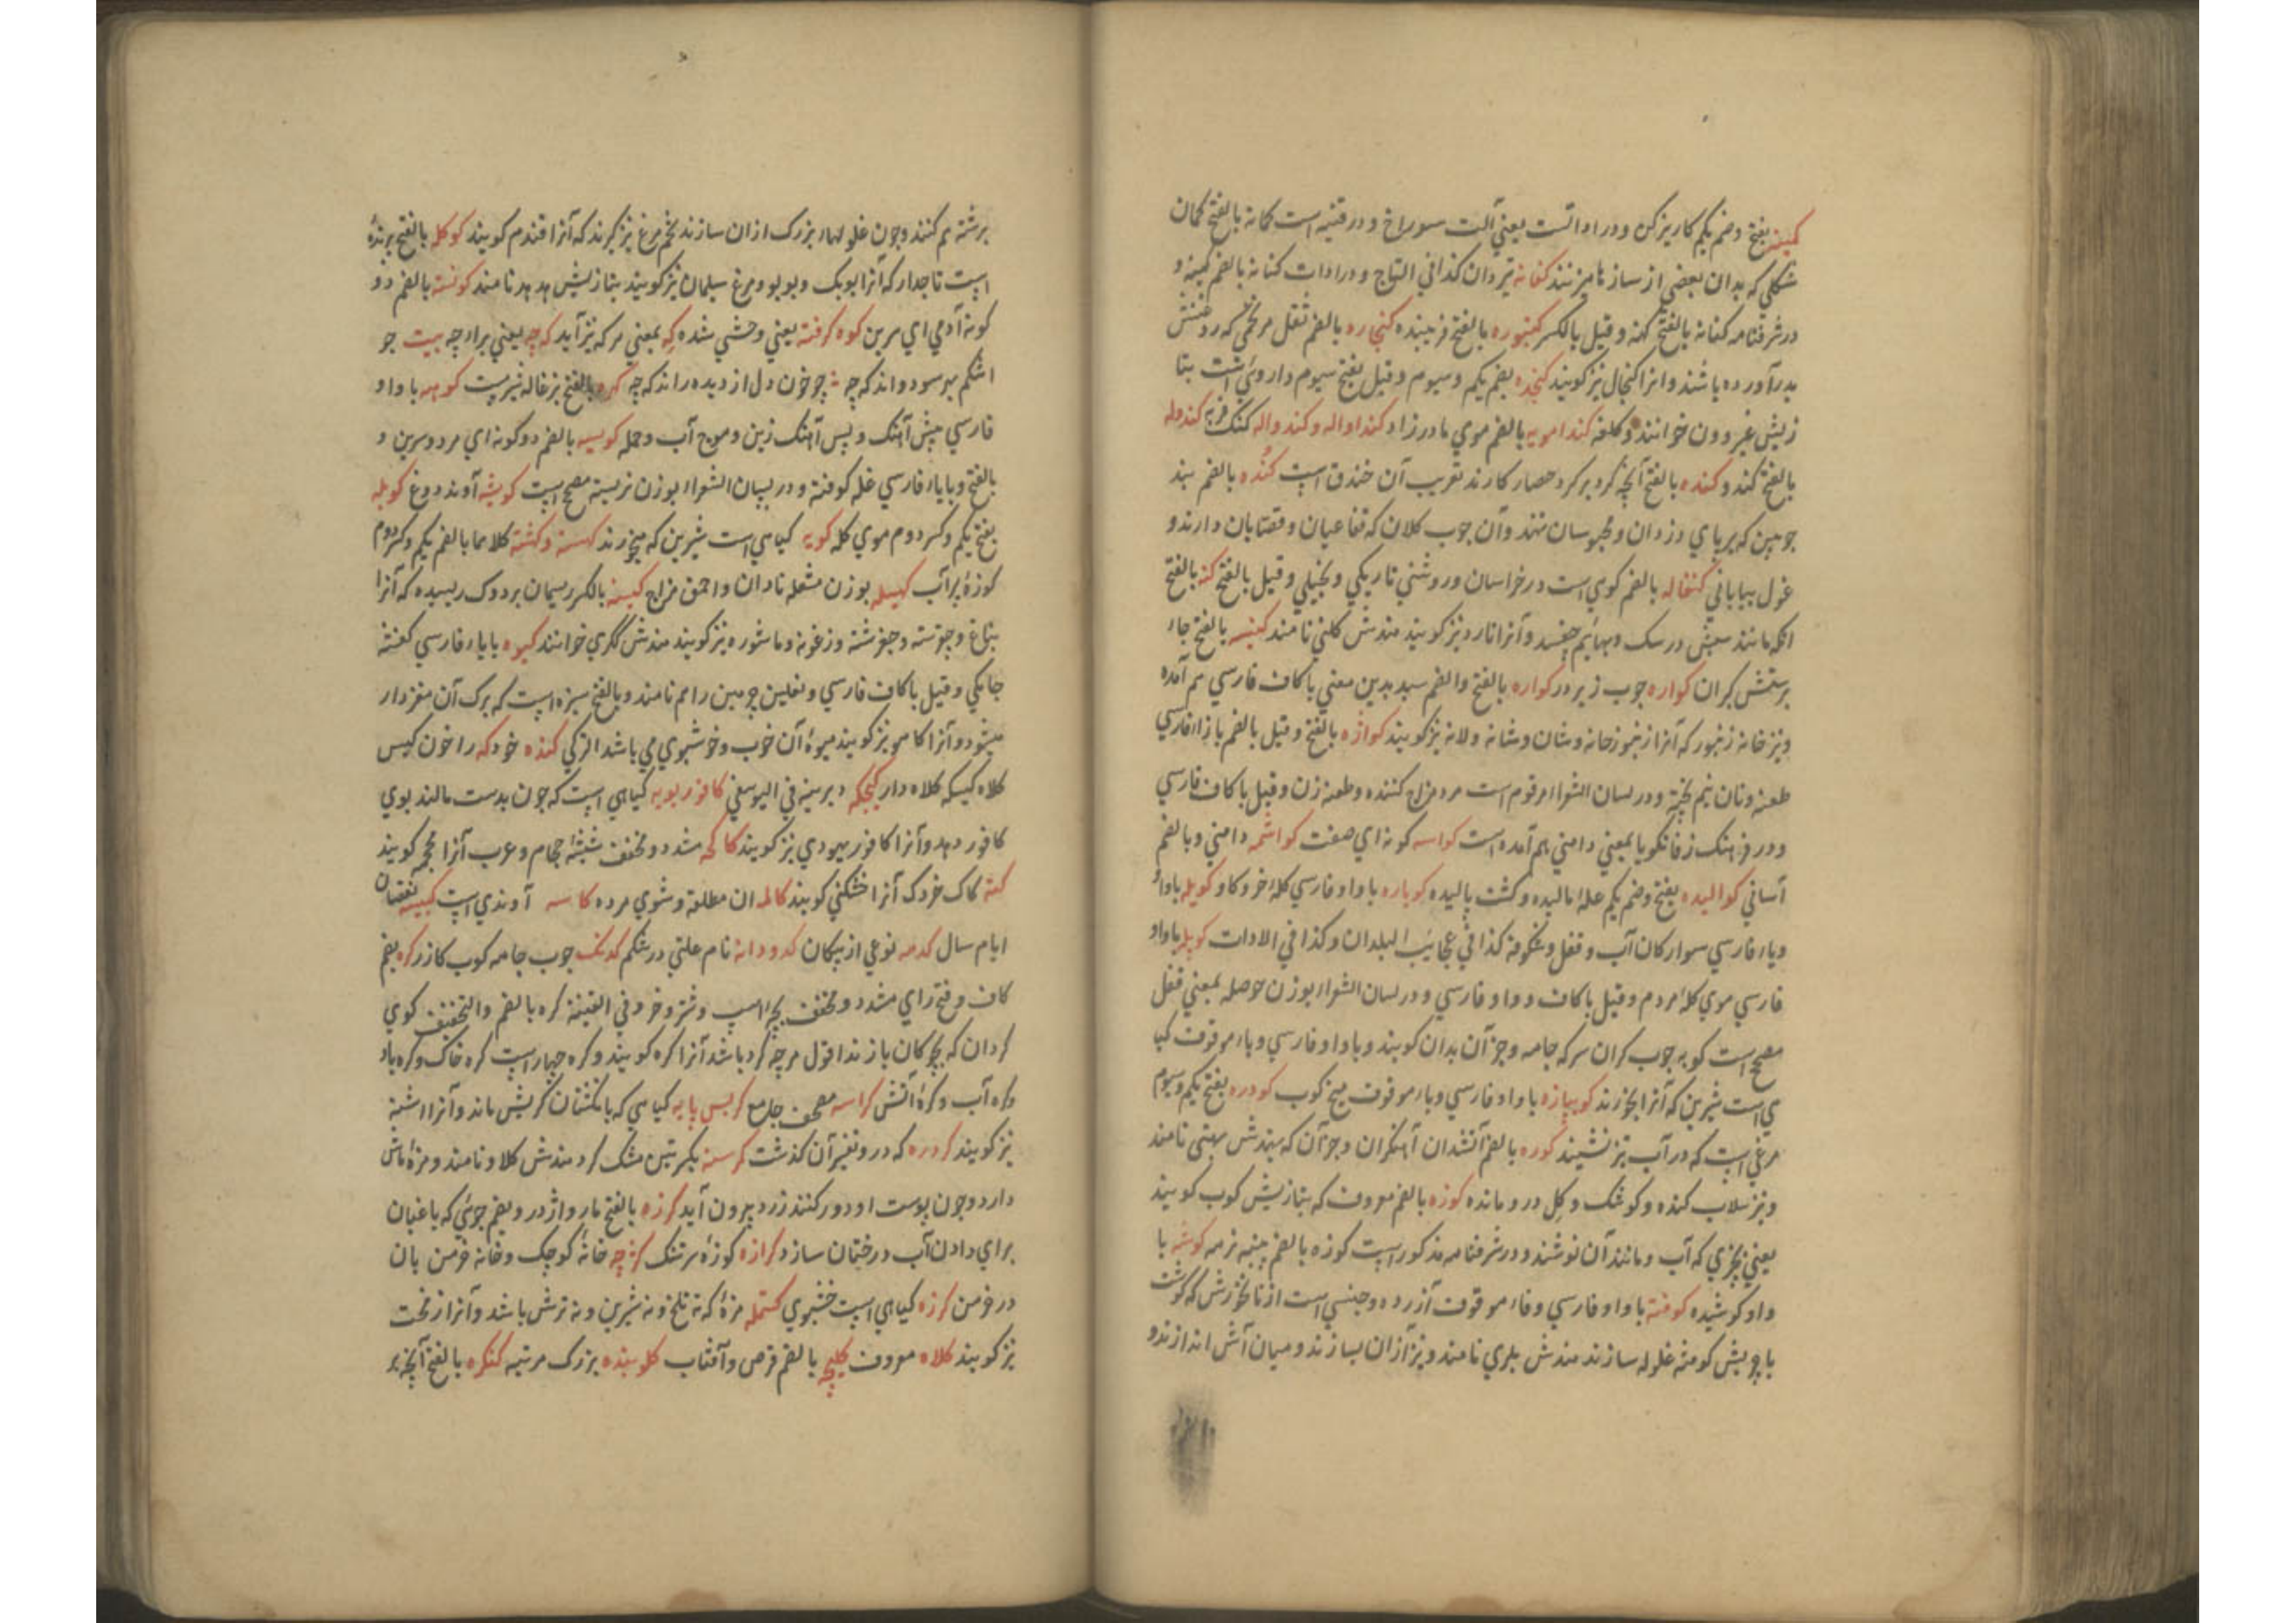 کمینه بفتح وضم یکم کاریزکن ودر اداتست یعنی آلت سوراخ ودر قنیه است کمانه بالفتح کمان
شکلی که بدان بعضی از سازها میزنند کنانه تیردان کذا فی التاج ودر ادات کنانه بالضم کهنه و
در شرفنامه کنانه بالفتح کهنه وقیل بالکسر کنبوره بالفتح فریبنده کنجاره بالضم ثفل هر تخمی که روغنش
بدرآورده باشند وانرا کنجال نیز گویند کنجده بضم یکم وسیوم وقیل بفتح سیوم داروئی است بتا
زیش خوانند وکلفه کندامویه بالضم موی مادرزاد کنداواله وکندواله کنک فربه کندوله
بالفتح کند و کنده بالفتح آنچه گرد بر گرد حصار کارند تعریب آن خندق است کنده بالضم بند
چوبین که بر پای دزدان ومحبوسان نهند وآن چوب کلان که قفاعیان وقصابان دارند و
غول بیابانی کنغاله بالضم کوی است در خراسان وروشنی تاریکی وبخیلی وقیل بالفتح کنه بالفتح
انکه مانند سپش در سک وبهایم چفسد وآنرا نارد نیز کویند هندش کلنی نامند کنیسه بالفتح جاء
پرستش کبران کواره چوب زیر در کواره بالفتح والضم سبد بدین معنی با کاف فارسی هم آمده
ونیز خانه زنبور که آنرا زنبورخانه وشان وشانه ولانه نیز کویند کواژه بالفتح وقیل بالضم با زاء فارسی
طعنه ونان نیم پخته ودر لسان الشعراء مرقوم است مرد مزاح کننده وطعنه زن وقیل با کاف فارسی
ودر فرهنک زفانکویا بمعنی دامنی هم آمده است کواسه کونه ای صفت کواشمه دامنی وبالضم
آسانی کوالیده بفتح وضم یکم غله بالیده وکشت بالیده کوباره با واو فارسی کله خر وکاو کوپله باواو
وپاء فارسی سوارکان آب وقفل وشکوفه کذا فی عجایب البلدان وکذا فی الادات کوپله باواو
فارسی موی کله مردم وقیل با کاف وواو فارسی ودر لسان الشعراء بوزن حوصله بمعنی قفل
مصحح است کوبه چوب کران سر که جامه وجز آن بدان کوبند وباواو فارسی وباء موقوف کیا
هی است شیرین که آنرا بخورند کوبیازه باواو فارسی وباء موقوف میخ کوب کودره بفتح یکم وسیوم
مرغی است که در آب تیز نشیند کوره بالضم آتشدان آهنکران وجز آن که بهندش بهتی نامند
ونیز سلاب کنده وکوشک وکل درو مانده کوزه بالضم معروف که بتازیش کوب کویند
یعنی چیزی که آب ومانند آن نوشند ودر شرفنامه مذکور است کوزه بالضم پنبه نرمه کوشه با
واو کوشیده کوفته باواو فارسی وفاء موقوف آزرده وجنسی است از نانخورش که کوشت
با چربش کوفته غلوله سازند هندش بلری نامند ونیز ازان بسازند ومیان آش اندازند و
برشته هم کنند وچون غلولها بزرک ازان سازند تخم مرغ نیز گیرند که آنرا قندم کویند کوکله بالفتح پرنده
ایست تاجدار که آنرا بوبک وبوبو ومرغ سلیمان نیز کویند بتازیش هدهد نامند کونسته بالضم دو
کونه آدمی ای سرین کوه کرفته یعنی وحشی شده که بمعنی هر که نیز آید که چه یعنی برای چه بیت جو
اشکم بهر سو دواند که چه چو خون دل از دیده راند که چه کهره بالفتح بزغاله شیرمست کوهه باواو
فارسی پیش آهنک وپس آهنک زین وموج آب وحمله کویسه بالضم دوکونه ای هر دو سرین و
بالفتح وبا یاء فارسی غله کوفته ودر لسان الشعراء بوزن نریسته مصحح است کویشه آوند دوغ کویله
بفتح یکم وکسر دوم موی کله کویه کیاهی است شیرین که میخورند کهسته وکشته کلاهما بالضم یکم وکسر دوم
کوزه پر آب کهیله بوزن مشعله نادان واحمق مزاج کهینه بالکسر ریسمان بر دوک ریسیده که آنرا
بناغ وجغوشته وزغوته وماشوره نیز کویند هندش ککری خوانند کیوه بایاء فارسی کفش
جامکی وقیل باکاف فارسی ونعلین چوبین را هم نامند وبالفتح سبزه است که برک آن مغزدار
میشود وآنرا کاهو نیز کویند میوه آن خوب وخوشبوی می باشد الترکی کنده خود که راخون کیس
کلاه کیسکه کلاه دار کیجکه دبرینه فی الیوسفی کافور بویه کیاهی است که چون بدست مالند بوی
کافور دهد وآنرا کافور یهودی نیز کویند کا که مشدد ومخفف شیشه حجام وعرب آنرا محجمه کویند
کته کاک خردک آنرا خشکنی کویند کالمه ان مطلقه وشوی مرده کاسه آوندی است کبیسه نقصان
ایام سال کدمه نوعی از پیکان کدودانه نام علتی در شکم کدنک چوب جامه کوب کازر کره بضم
کاف وفتح رای مشدد ومخفف بچه اسپ وشتر وخر وفی القنیة کره بالضم والتخفیف کوی
کردان که بچکان بازند اقول هر چه کرد باشد آنرا کره کویند وکره چهار است کره خاک وکره باد
وکره آب وکره آتش کراسه مصحف جامع کربس پایه کیاهی که بانکشتان کربش ماند وآنرا اشنه
نیز کویند کرده که درو تغیر آن کذشت کرسنه بکسرتین مشک کرد هندش کلاو نامند ومزه ماش
دارد وچون پوست او دور کنند زرد بیرون آید کرزه بالفتح مار واژدر وبضم جوئی که باغبان
برای دادن آب درختان سازد کرازه کوزه سرتنک کرچه خانه کوچک وخانه خرمن بان
در خرمن کرزه کیاهی است خشبوی کستمله مزه که نه تلخ ونه شیرین ونه ترش باشد وآنرا زنخت
نیز کویند کلاه معروف کلیچه بالضم قرص وآفتاب کلوبنده بزرک مرتبه کنکره بالفتح آنچه بر